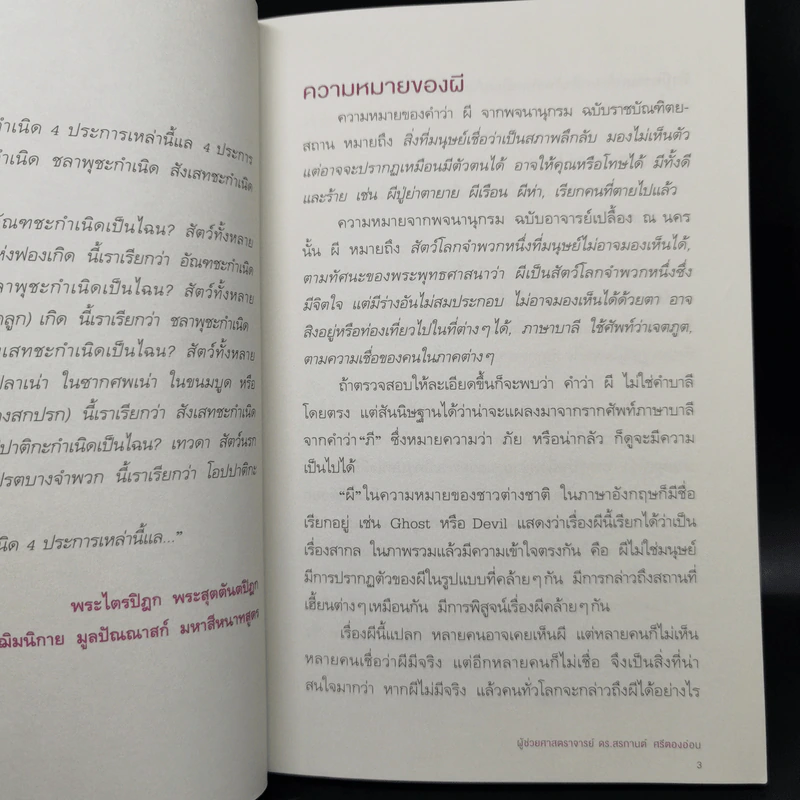 กำเนิด 4 ประการเหล่านี้แล 4 ประการ
กำเนิด ชลาพุชะกำเนิด สังเสทชะกำเนิด
อัณฑชะกำเนิดเป็นไฉน? สัตว์ทั้งหลาย
แห่งฟองเกิด นี้เราเรียกว่า อัณฑชะกำเนิด
ชลาพุชะกำเนิดเป็นไฉน? สัตว์ทั้งหลาย
ลูก) เกิด นี้เราเรียกว่า ชลาพุชะกำเนิด
สังเสทชะกำเนิดเป็นไฉน? สัตว์ทั้งหลาย
ปลาเน่า ในซากศพเน่า ในขนมบูด หรือ
ของสกปรก) นี้เราเรียกว่า สังเสทชะกำเนิด
โอปปาติกะกำเนิดเป็นไฉน? เทวดา สัตว์นรก
เปรตบางจำพวก นี้เราเรียกว่า โอปปาติกะ
กำเนิด 4 ประการเหล่านี้แล...”
พระไตรปิฎก พระสุตตันตปิฎก
มัชฌิมนิกาย มูลปัณณาสก์ มหาสีหนาทสูตร
ความหมายของผี
ความหมายของคำว่า ผี จากพจนานุกรม ฉบับราชบัณฑิตย-
สถาน หมายถึง สิ่งที่มนุษย์เชื่อว่าเป็นสภาพลึกลับ มองไม่เห็นตัว
แต่อาจจะปรากฏเหมือนมีตัวตนได้ อาจให้คุณหรือโทษได้ มีทั้งดี
และร้าย เช่น ผีปู่ย่าตายาย ผีเรือน ผีห่า, เรียกคนที่ตายไปแล้ว
ความหมายจากพจนานุกรม ฉบับอาจารย์เปลื้อง ณ นคร
นั้น ผี หมายถึง สัตว์โลกจำพวกหนึ่งที่มนุษย์ไม่อาจมองเห็นได้,
ตามทัศนะของพระพุทธศาสนาว่า ผีเป็นสัตว์โลกจำพวกหนึ่งซึ่ง
มีจิตใจ แต่มีร่างอันไม่สมประกอบ ไม่อาจมองเห็นได้ด้วยตา อาจ
สิงอยู่หรือท่องเที่ยวไปในที่ต่างๆได้, ภาษาบาลี ใช้ศัพท์ว่าเจตภูต,
ตามความเชื่อของคนในภาคต่างๆ
ถ้าตรวจสอบให้ละเอียดขึ้นก็จะพบว่า คำว่า ผี ไม่ใช่คำบาลี
โดยตรง แต่สันนิษฐานได้ว่าน่าจะแผลงมาจากรากศัพท์ภาษาบาลี
จากคำว่า“ภี” ซึ่งหมายความว่า ภัย หรือน่ากลัว ก็ดูจะมีความ
เป็นไปได้
“ผี”ในความหมายของชาวต่างชาติ ในภาษาอังกฤษก็มีชื่อ
เรียกอยู่ เช่น Ghost หรือ Devil แสดงว่าเรื่องผีนี้เรียกได้ว่าเป็น
เรื่องสากล ในภาพรวมแล้วมีความเข้าใจตรงกัน คือ ผีไม่ใช่มนุษย์
มีการปรากฏตัวของผีในรูปแบบที่คล้ายๆกัน มีการกล่าวถึงสถานที่
เฮี้ยนต่างๆเหมือนกัน มีการพิสูจน์เรื่องผีคล้ายๆกัน
เรื่องผีนี้แปลก หลายคนอาจเคยเห็นผี แต่หลายคนก็ไม่เห็น
หลายคนเชื่อว่าผีมีจริง แต่อีกหลายคนก็ไม่เชื่อ จึงเป็นสิ่งที่น่า
สนใจมากว่า หากผีไม่มีจริง แล้วคนทั่วโลกจะกล่าวถึงผีได้อย่างไร
ผู้ช่วยศาสตราจารย์ ดร.สรกานต์ ศรีตองอ่อน
3